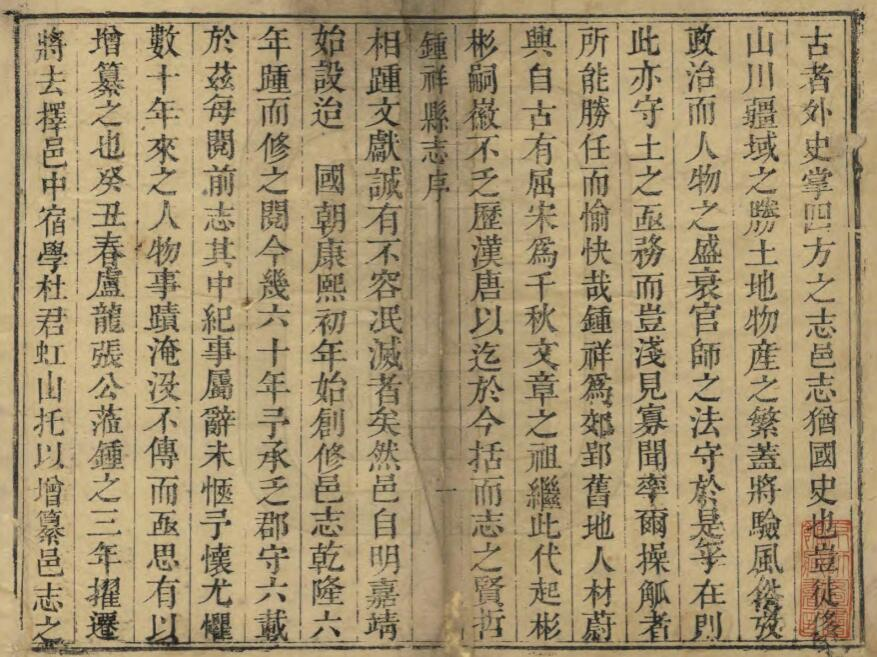 古者外史掌四方之志邑志猶國史也豈徒侈
山川疆域之勝土地物產之繁蓋將驗風俗攷
政治而人物之盛衰官師之法守於是乎在則
此亦守土之亟務而豈淺見寡聞率爾操觚者
所能勝任而愉快哉鍾祥爲郊郢舊地人材蔚
興自古有屈宋爲千秋文章之祖繼此代起彬
彬嗣徽不乏歷漢唐以迄於今括而志之賢哲
鍾祥縣志序
一
相踵文獻誠有不容冺滅者矣然邑自明嘉靖
始設迨 國朝康熙初年始創修邑志乾隆六
年踵而修之閱今幾六十年予承乏郡守六載
於茲每閱前志其中紀事屬辭未愜予懷尤懼
數十年來之人物事蹟淹沒不傳而亟思有以
增纂之也癸丑春盧龍張公蒞鍾之三年擢遷
將去擇邑中宿學杜君虹山托以增纂邑志之